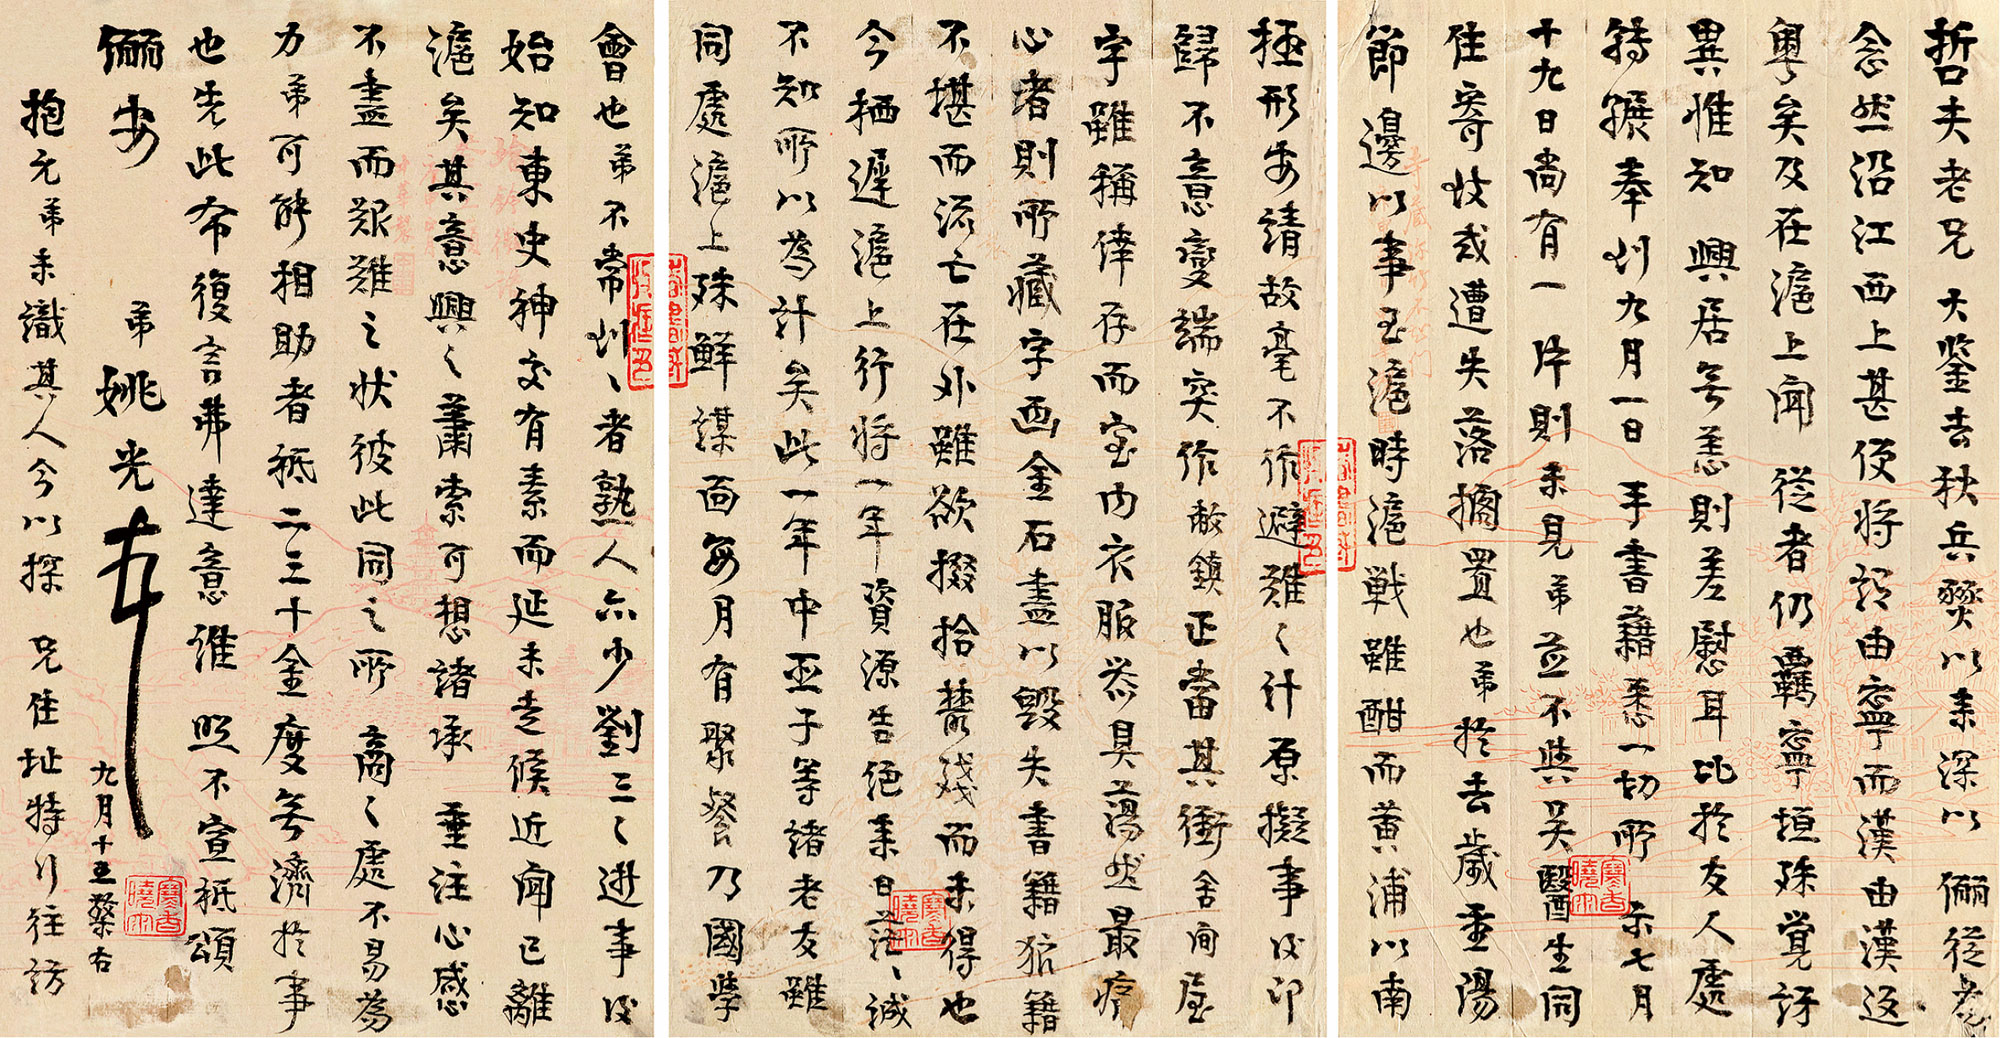 哲夫老兄大鉴去秋兵燹以来深以俪從为
念然沿江西上甚便将謂由寧而漢由漢返
粤矣及在滬上聞從者仍羈寧垣殊覺訝
異惟知興居無恙則差慰耳比於友人處
轉輾奉到九月一日手書藉悉一切所示七月
十九日尚有一片則未見弟並不與吴醫生同
住寄彼或遭失落擱置也弟於去歲重陽
節邊以事至滬時滬戰雖酣而黄浦以南
極形安請故毫不作避難之計原擬事後即
歸不意變端突作敝鎮正當其衝舍间屋
宇雖稱倖存而室内衣服器具蕩然最疼
心者則所藏字画金石盡以毁失書籍狼籍
不堪而流亡在外雖欲掇拾叢残而未得也
今栖遲滬上行将一年資源告绝来日茫、誠
不知所以為計矣此一年中亚子等諸老友雖
同處滬上殊鮮謀面每月有聚餐乃國學
會也弟不常到、者熟人亦少劉三之逝事後
始知東史神交有素而延未走候近聞已離
滬矣其意興之蕭索可想諸承垂注心感
不盡而艱難之状彼此同之所商之處不易為
力弟可能相助者祗二三十金度無濟於事
也先此布復言弗達意诸照不宣祗頌
俪安
弟姚光
九月十五
抱元弟未識其人今以探兄住址特行往訪